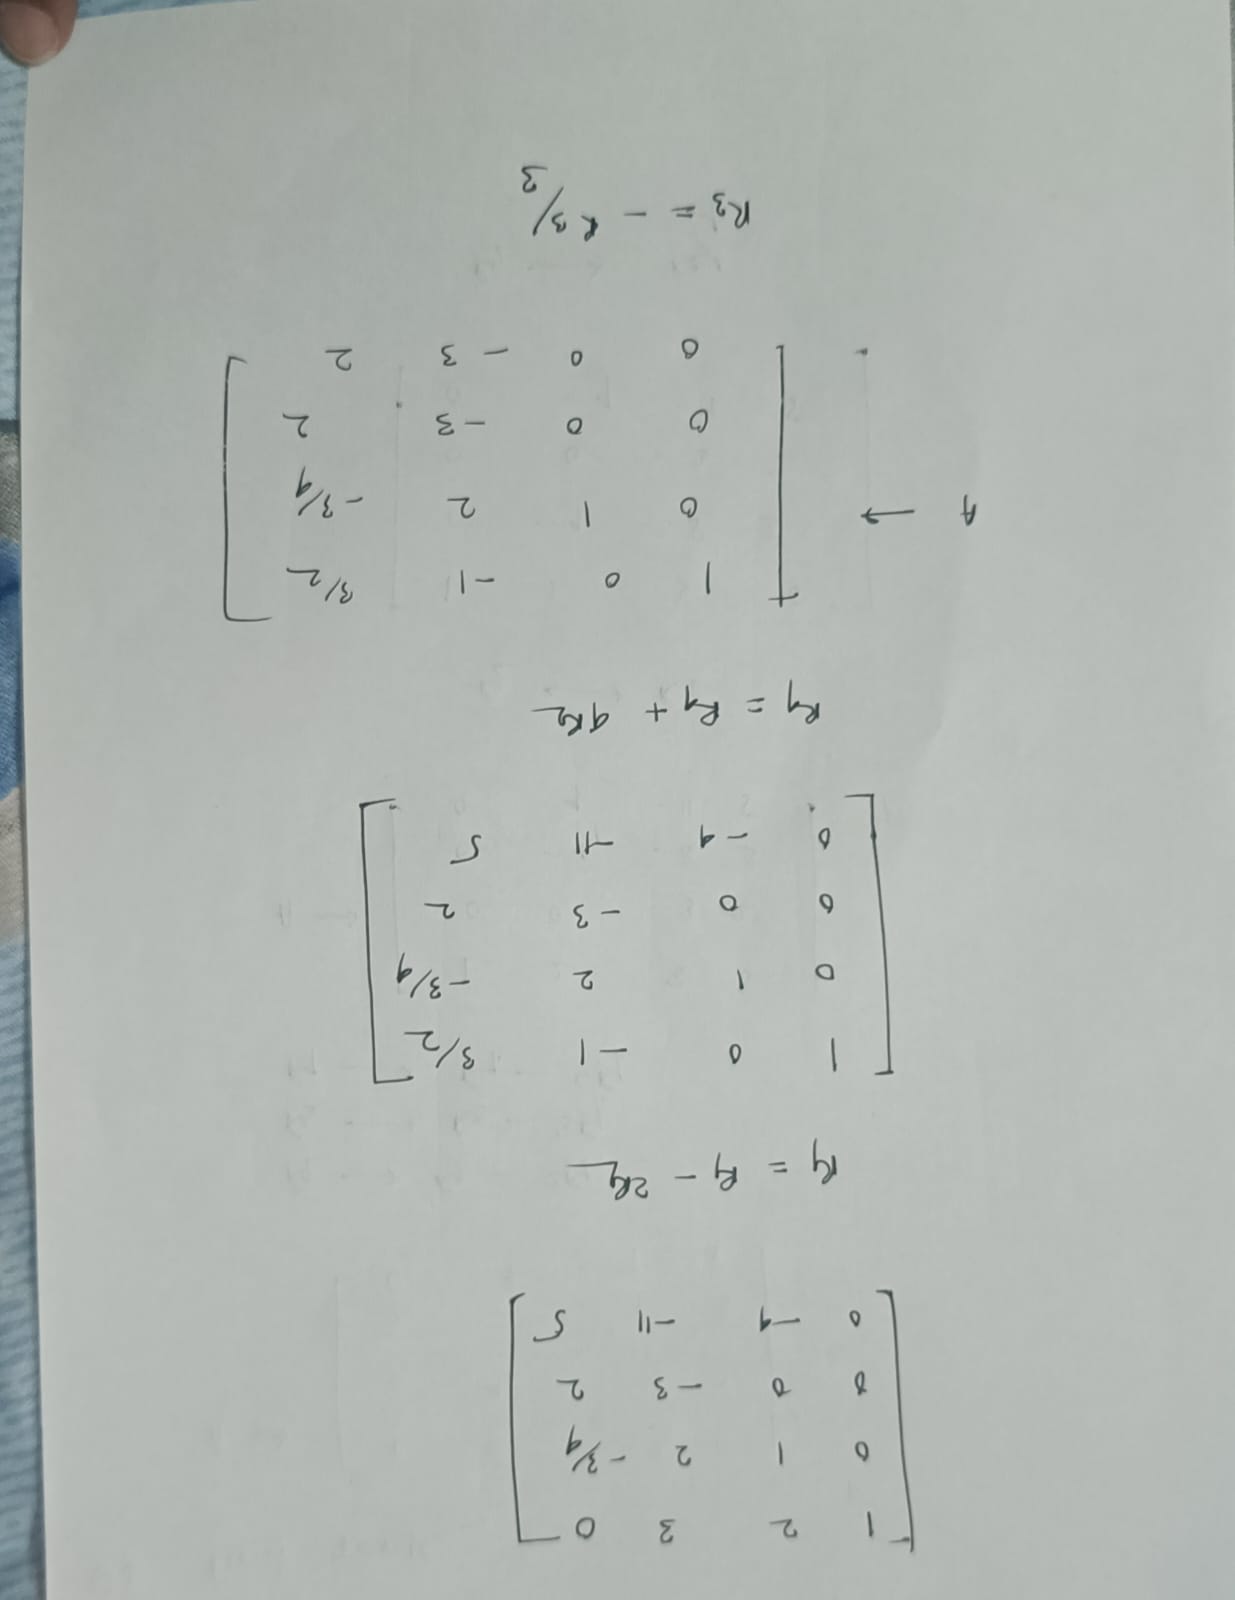 1 2 3 0
0 1 2 -3/4
0 0 -3 2
0 -4 -11 5
R1 = R1 - 2R2
1 0 -1 3/2
0 1 2 -3/4
0 0 -3 2
0 -4 -11 5
R4 = R4 + 4R2
A → 1 0 -1 3/2
0 1 2 -3/4
0 0 -3 2
0 0 -3 2
R3 = - R3/3